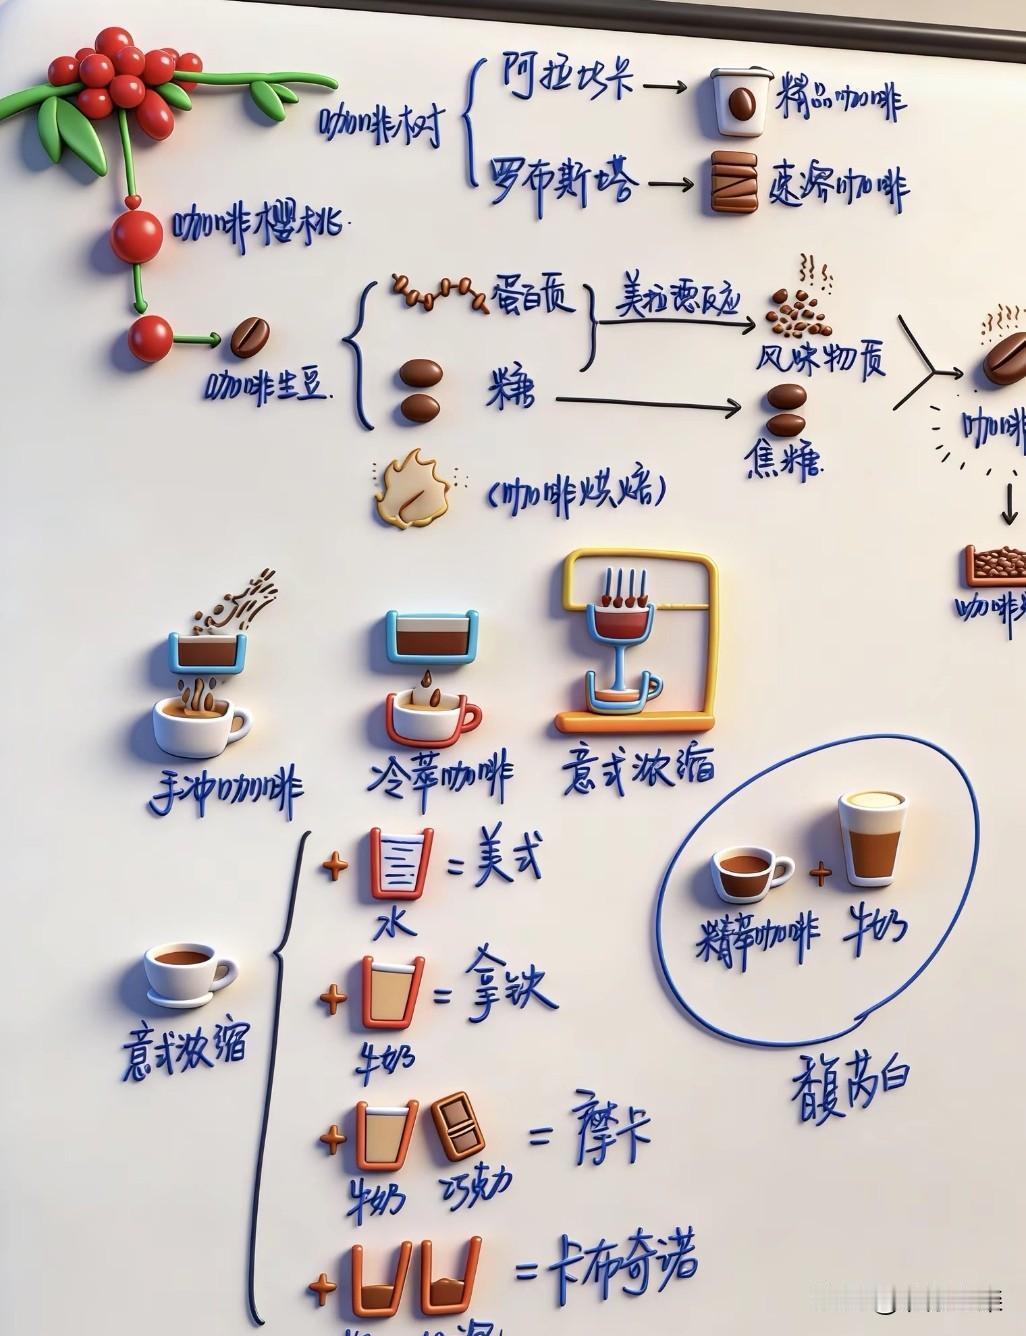 咖啡树
阿拉比卡
精品咖啡
罗布斯塔
速溶咖啡
咖啡樱桃.
咖啡生豆.
蛋白质
美拉德反应
风味物质
糖
焦糖.
咖啡
(咖啡烘焙)
咖啡
手冲咖啡
冷萃咖啡
意式浓缩
意式浓缩
+
水
= 美式
+
牛奶
= 拿铁
+
牛奶
巧克力
= 摩卡
+
= 卡布奇诺
精萃咖啡
+
牛奶
馥芮白